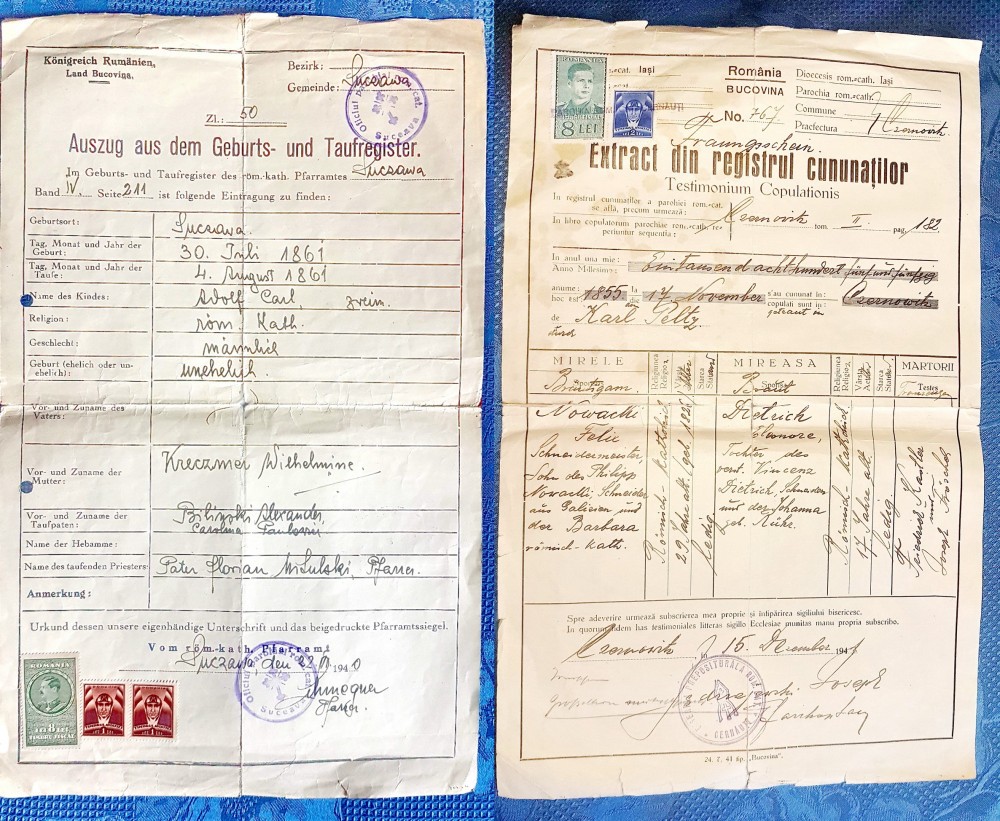 Königreich Rumänien,
Land Bucovina.
Bezirk:
Gemeinde: Suczawa
Zl.: 50
Auszug aus dem Geburts- und Taufregister.
Im Geburts- und Taufregister des röm.-kath. Pfarramtes Suczawa
Band IV. Seite 211 ist folgende Eintragung zu finden:
Geburtsort: Suczawa.
Tag, Monat und Jahr der Geburt: 30. Juli 1861
Tag, Monat und Jahr der Taufe: 4. August 1861
Name des Kindes: Adolf Carl
Religion: röm. Kath.
Geschlecht: männlich
Geburt (ehelich oder unehelich): unehelich.
Vor- und Zuname des Vaters:
Vor- und Zuname der Mutter: Kreczmer Wilhelmine.
Vor- und Zuname der Taufpaten: Alexander, Carolina
Name der Hebamme:
Name des taufenden Priesters: Pater Florian Mitulski, Pfarrer.
Anmerkung:
Urkund dessen unsere eigenhändige Unterschrift und das beigedruckte Pfarramtssiegel.
Vom röm-kath. Pfarramt
Suczawa den 1940
Pfarrer.
ROMANIA
LEI 8 LEI
TIMBRU FISCAL
ROMÂNIA
8 LEI
-cat. Iași
România
BUCOVINA
No. 767
Dioecesis rom.-cath. Iași
Parochia rom.-cath.
Commune
Praefectura
Czernowitz
Trauungsschein.
Extract din registrul cununaților
Testimonium Copulationis
In registrul cununatilor a parohiei rom.-cat.
se află, precum urmează:
In libro copulatorum parochiae rom.-cath. re-
periuntur sequentia:
Czernovitz tom. II. pag. 182
In anul una mie:
Anno Millesimo:
Eintausend achthundert fünfundfünfzig
anume:
hoc est 1855
la
die 17 November
s'au cununat in:
copulati sunt in:
getraut in
Czernowitz
de
durch
Karl Peltz.
MIRELE
Bräutigam
Religiunea
Religio
MIREASA
Braut
Religiunea
Religio
MARTORII
Testes
Nowacki
Felix
Schneidermeister,
Sohn des Philipp
Novacki, Schneider
aus Galizien und
der Barbara
römisch-kath.
Römisch-katholisch
29 Jahre alt /geb. 1826/
ledig
Dietrich
Eleonore,
Tochter des
verst. Vincenz
Dietrich, Schneiders
und der Johanna
geb. Kühr.
Römisch-katholisch
17 Jahre alt.
ledig
und
Joseph
Spre adeverire urmează subscrierea mea proprie și întipărirea sigiliului bisericesc.
In quorum fidem has testimoniales litteras sigillo Ecclesiae munitas manu propria subscribo.
Czernowitz, 15. Dezember 1941
Joseph
24. 7. 41 Tip. „Bucovina"